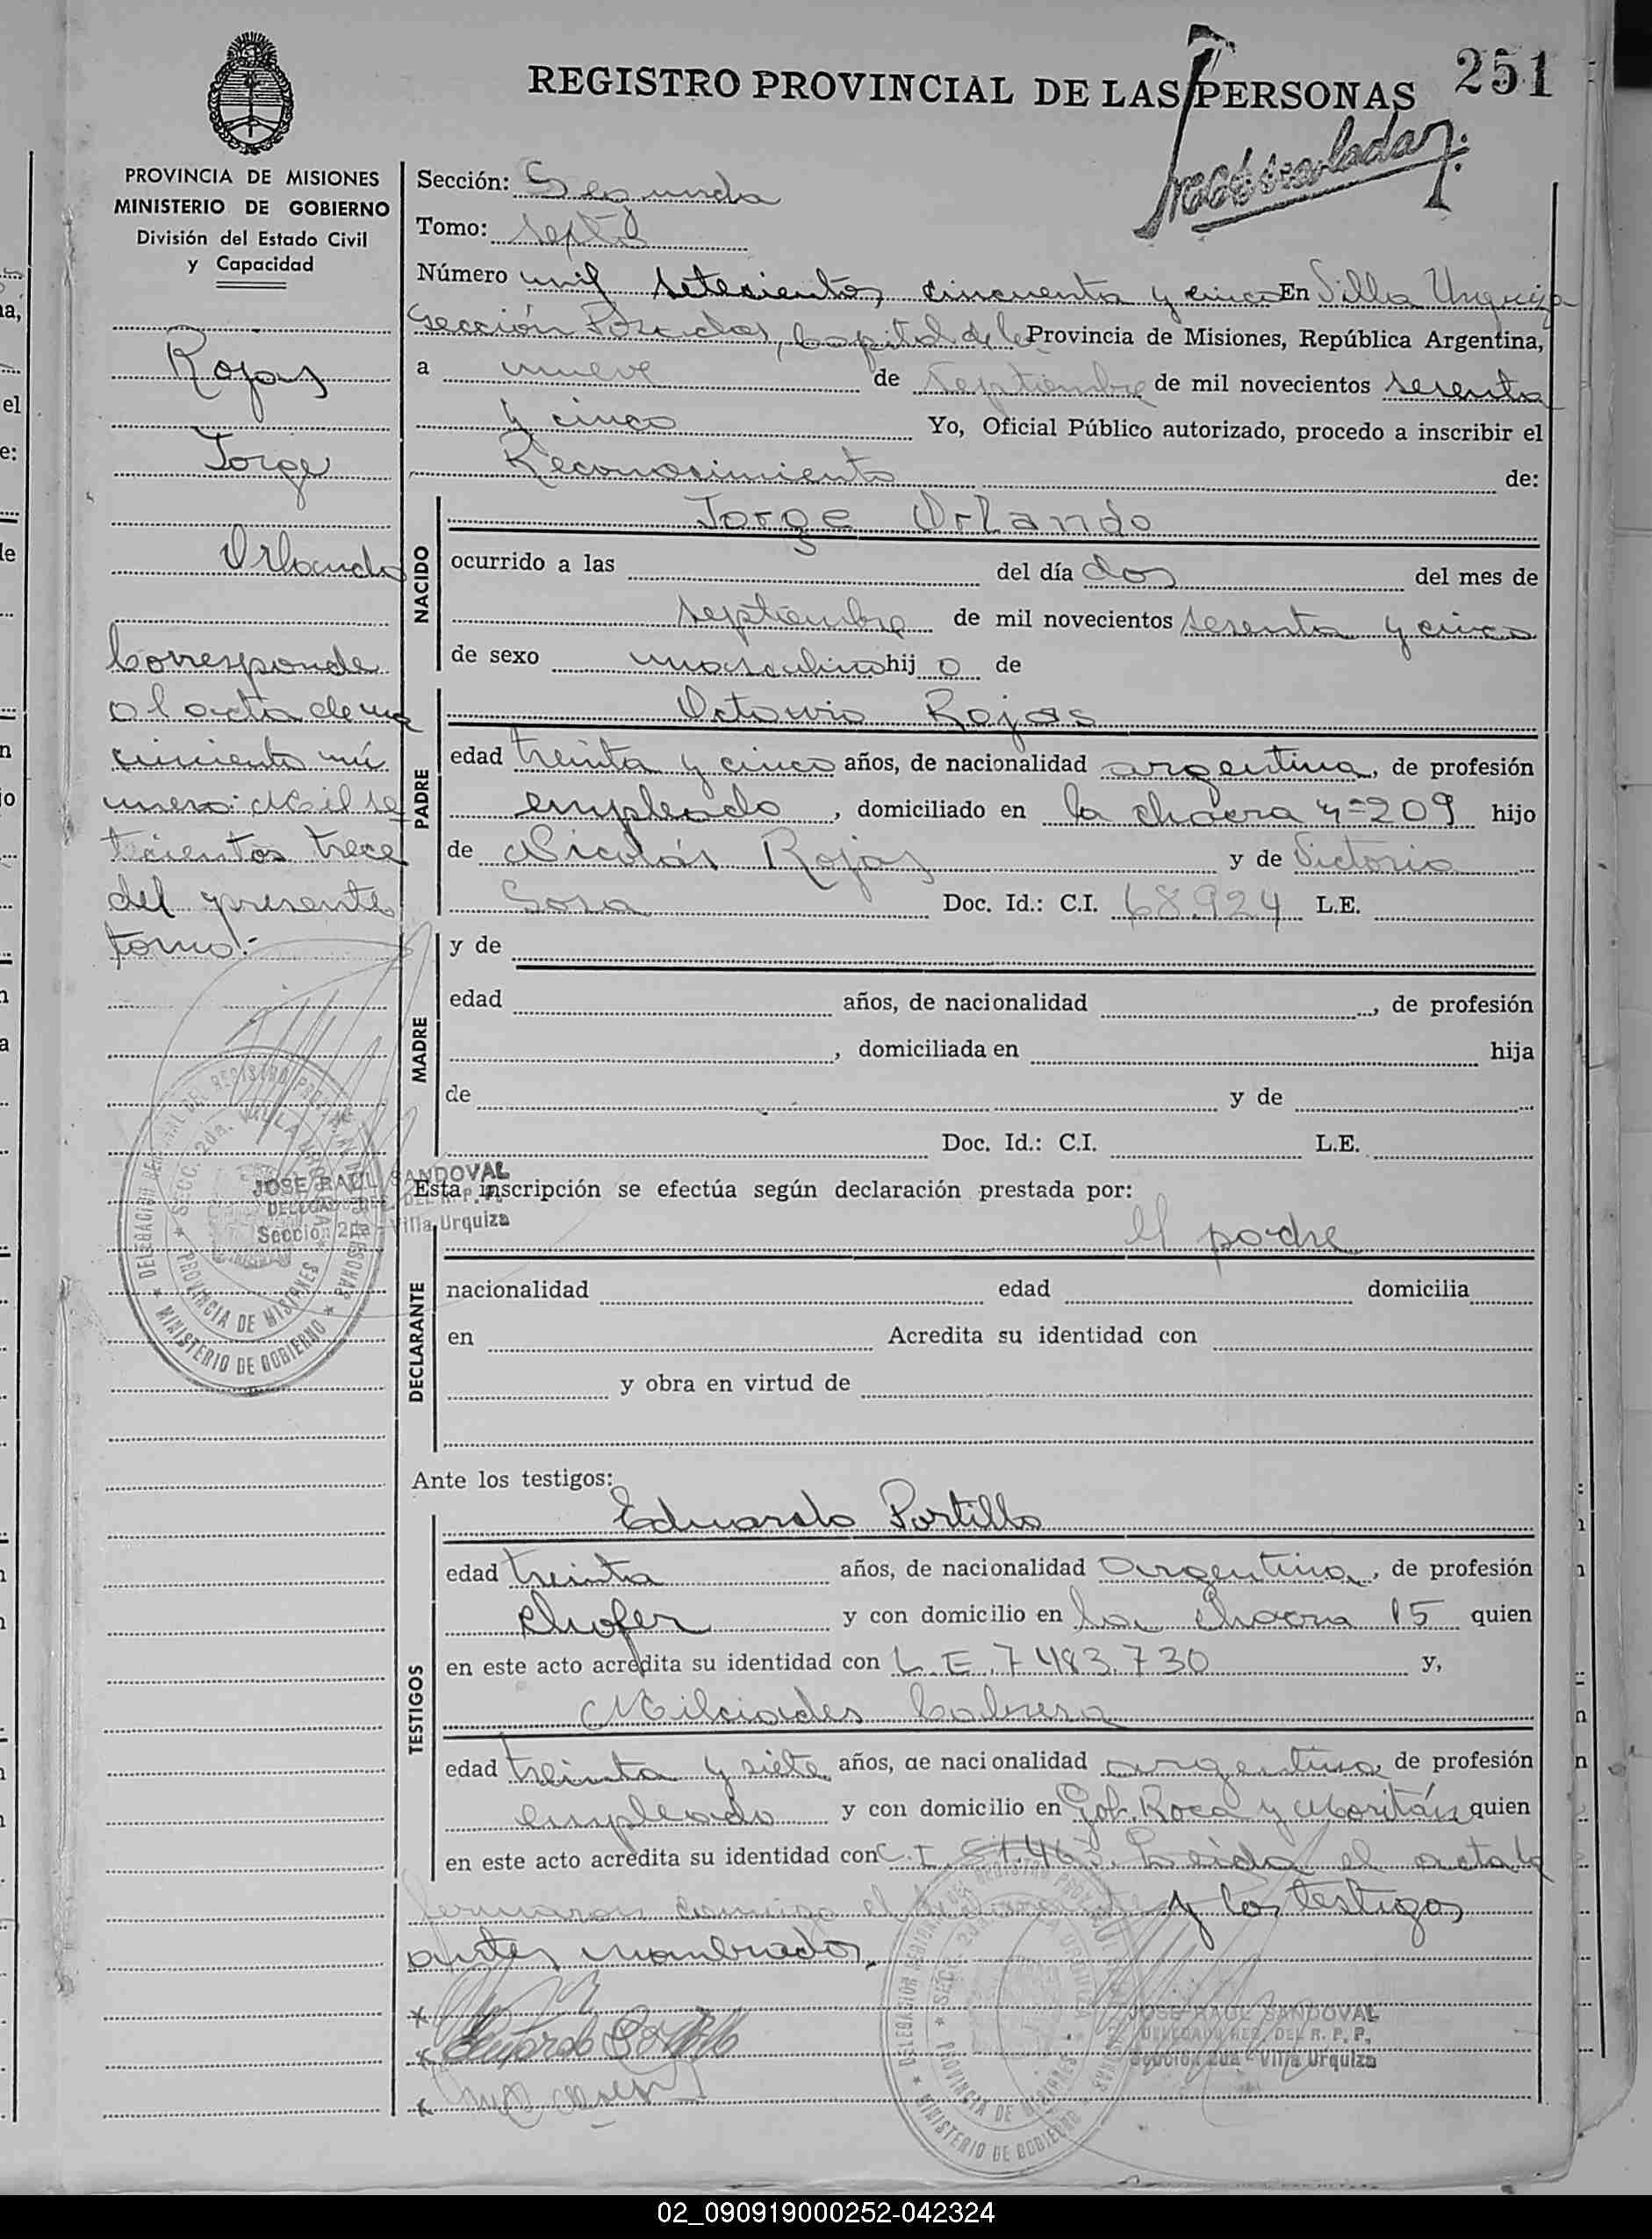 251
REGISTRO PROVINCIAL DE LAS PERSONAS
PROVINCIA DE MISIONES
MINISTERIO DE GOBIERNO
División del Estado Civil
y Capacidad
Rojas
Jorge
Orlando
Corresponde
al acta de na
cimiento nú
mero: Mil se
tecientos trece
del presente
tomo.-
Sección: Segunda
Tomo: septo
Número mil setecientos cincuenta y cinco En Villa Urquiza
Sección Posadas, Capital de la Provincia de Misiones, República Argentina,
a nueve de Septiembre de mil novecientos sesenta
y cinco Yo, Oficial Público autorizado, procedo a inscribir el
Reconosimiento de:
NACIDO
Jorge Orlando
ocurrido a las del día dos del mes de
septiembre de mil novecientos sesenta y cinco
de sexo masculino hijo de
PADRE
Octavio Rojas
edad treinta y cinco años, de nacionalidad argentina, de profesión
empleado, domiciliado en la chacra nº 209 hijo
de Nicolás Rojas y de Victoria
Sosa Doc. Id.: C.I. 68.924 L.E.
MADRE
y de
edad años, de nacionalidad , de profesión
, domiciliada en hija
de y de
Doc. Id.: C.I. L.E.
Esta inscripción se efectúa según declaración prestada por:
DECLARANTE
El padre
nacionalidad edad domicilia
en Acredita su identidad con
y obra en virtud de
Ante los testigos:
TESTIGOS
Eduardo Portillo
edad treinta años, de nacionalidad Argentina, de profesión
chofer y con domicilio en la chacra 15 quien
en este acto acredita su identidad con L.E. 7483.730 y,
Milciades Cabrera
edad treinta y siete años, de nacionalidad argentina, de profesión
empleado y con domicilio en Gob. Roca y Moritán quien
en este acto acredita su identidad con C.I. Leída el acta la
firmaron conmigo el declarante y los testigos
antes nombrados
DELEGACION REGIONAL DEL REGISTRO PROV. DE LAS PERSONAS
SEC. 2da. VILLA URQUIZA
PROVINCIA DE MISIONES
MINISTERIO DE GOBIERNO
JOSE RAUL SANDOVAL
DELEGADO REG. DEL R. P. P.
Sección 2da - Villa Urquiza
JOSE RAUL SANDOVAL
DELEGADO REG. DEL R. P. P.
Sección 2da - Villa Urquiza
02_090919000252-042324